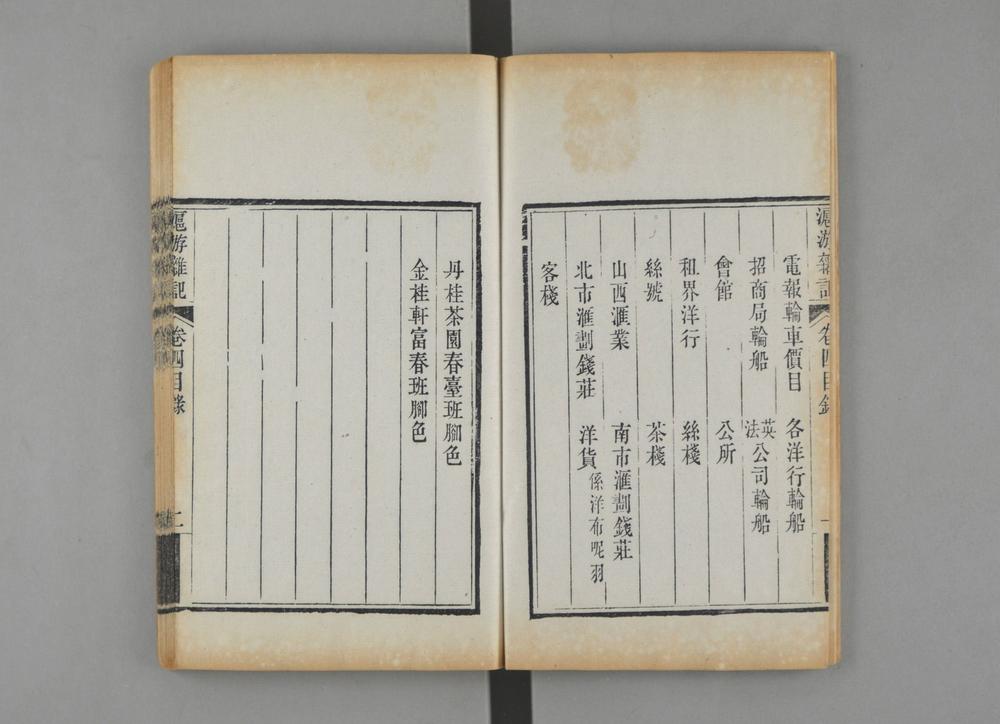 滬游雜記 卷四目錄 一
電報輪車價目 各洋行輪船
招商局輪船 英法公司輪船
會館 公所
租界洋行 絲棧
絲號 茶棧
山西滙業 南市滙劃錢莊
北市滙劃錢莊 洋貨係洋布呢羽
客棧
丹桂茶園春臺班腳色
金桂軒富春班腳色
滬游雜記 卷四目錄 二